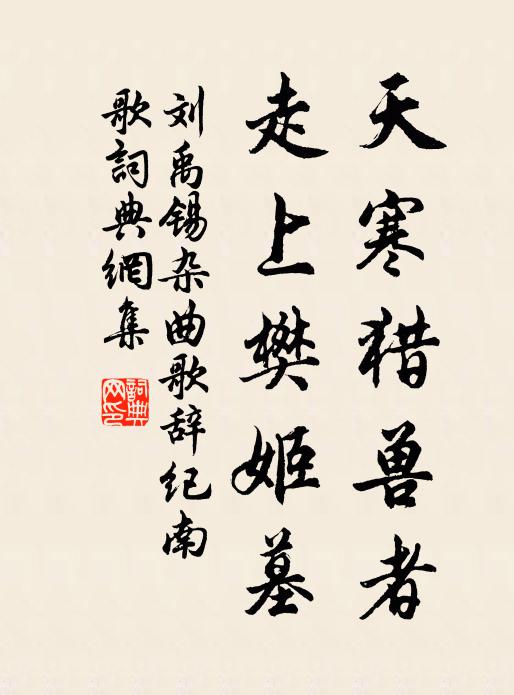 天寒猎兽者
走上樊姬墓
刘禹锡杂曲歌辞纪南
歌詞典網集
詞典网印